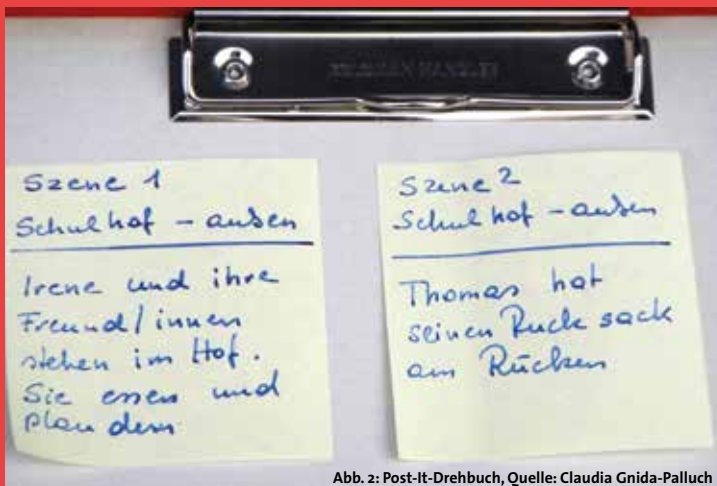 Szene 1
Schulhof – außen
Irene und ihre
Freund/innen
stehen im Hof.
Sie essen und
plaudern
Szene 2
Schulhof – außen
Thomas hat
seinen Rucksack
am Rücken
Abb. 2: Post-It-Drehbuch, Quelle: Claudia Gnida-Palluch